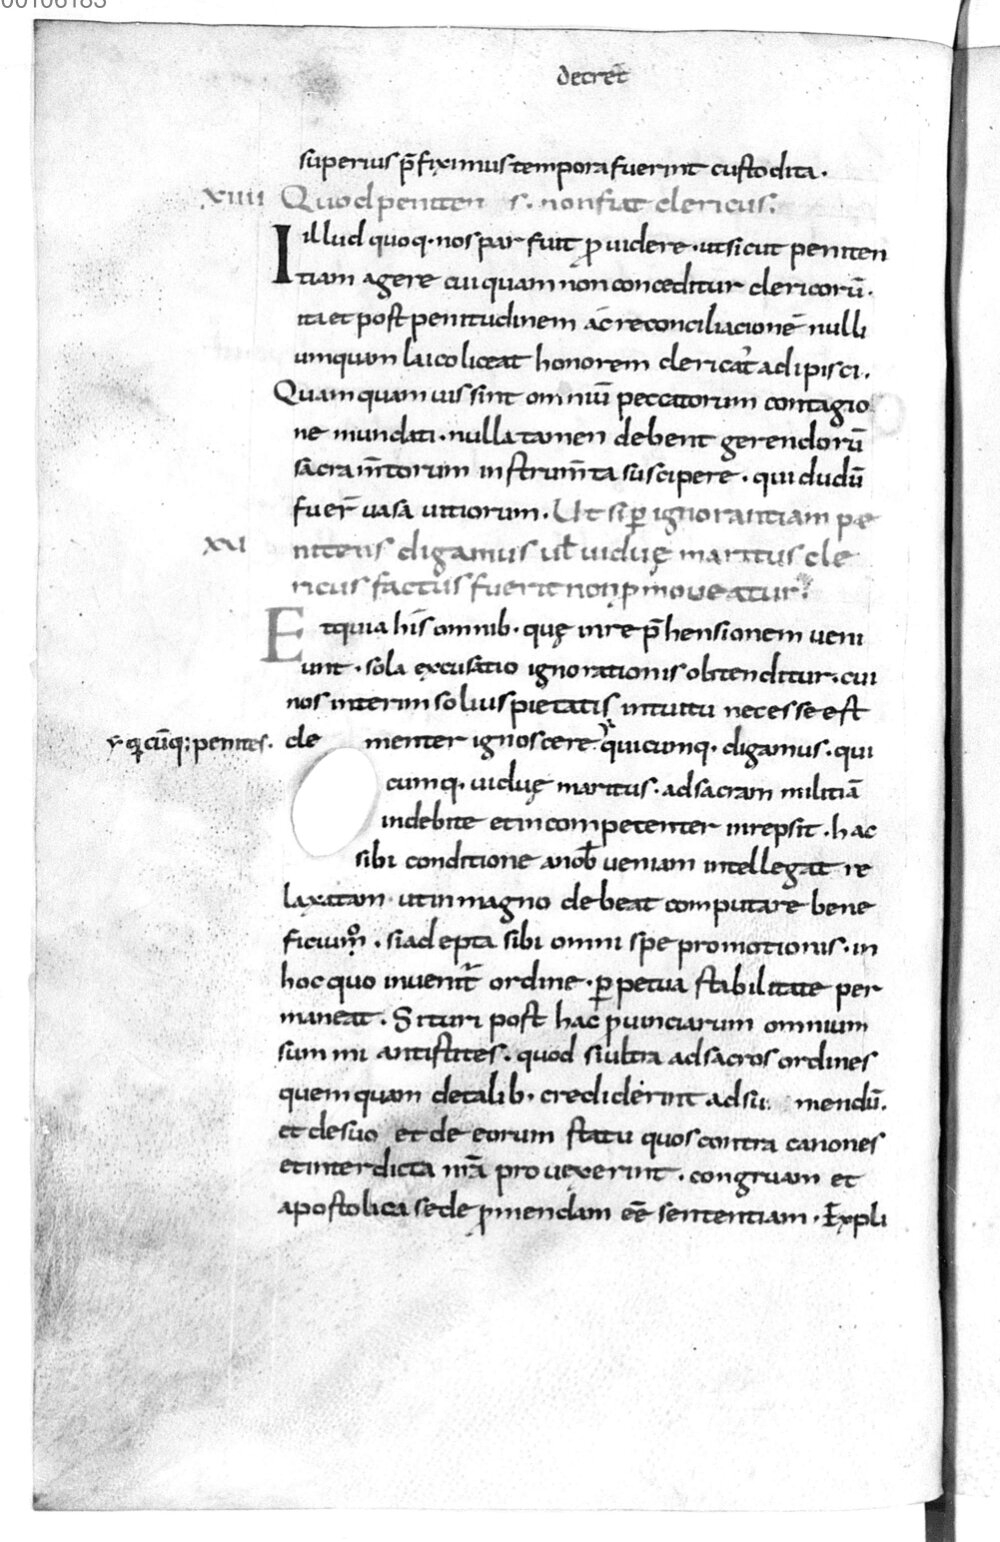 00106183
decret̄
superius p̄fiximus tempora fuerint custodita.
XIIII Quod peniten s. non fiat clericus.
Illud quoq. nos par fuit ꝓuidere. ut sicut peniten
tiam agere cuiquam non conceditur clericorū.
ita et post penitudinem ac reconciliacionē nulli
umquam laico liceat honorem clericat᷒ adipisci.
Quamquam uis sint omniū peccatorum contagio
ne mundati. nulla tamen debent gerendorū
sacram̄torum instrum̄ta suscipere. qui dudū
fuer̄ uasa uitiorum. Ut si ꝑ ignorantiam pę
XVI nitens digamus ul̄ uiduę maritus cle
ricus factus fuerit non ꝓmoueatur.
Et quia his omnib. quę in rep̄hensionem ueni
unt. sola excusatio ignorationis obtenditur. cui
nos interim solius pietatis intuitu necesse est
⁊ q̄cūq; penites. cle menter ignoscere. quicunq. digamus. qui
cumq. uiduę maritus. ad sacram militiā
indebite et incompetenter inrepsit. hac
sibi conditione a nob̄ ueniam intellegat re
laxatam ut in magno debeat computare bene
ficium. si adepta sibi omni spe promotionis. in
hoc quo inuenit᷒ ordine. ꝑpetua stabilitate per
maneat. Situri post hac ꝓuinciarum omnium
summi antistites. quod si ultra ad sacros ordines
quemquam de talib. crediderint adsu mendū.
et de suo et de eorum statu quos contra canones
et interdicta nr̄a prouexerint. congruam et
apostolica sede ꝓmendam ēē sententiam. Expli